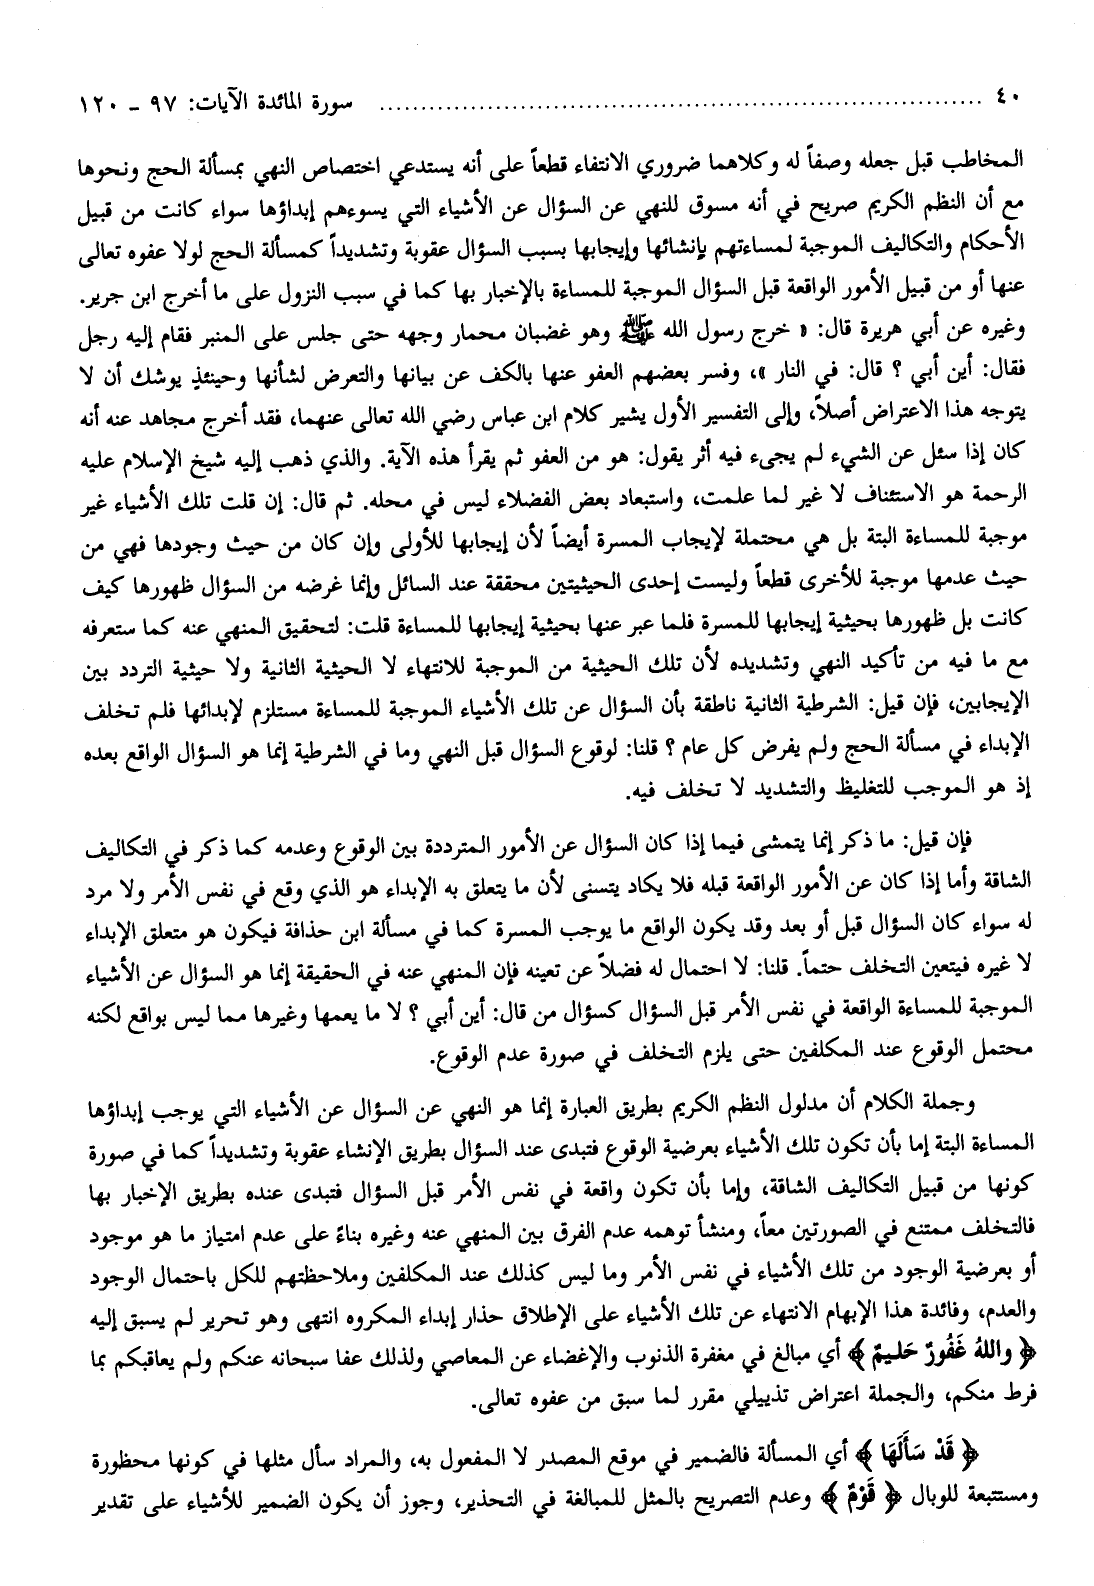 ٤٠ ........................................ سورة المائدة الآيات: ٩٧ - ١٢٠
المخاطب قبل جعله وصفاً له وكلاهما ضروري الانتفاء قطعاً على أنه يستدعي اختصاص النهي بمسألة الحج ونحوها
مع أن النظم الكريم صريح في أنه مسوق للنهي عن السؤال عن الأشياء التي يسوءهم إبداؤها سواء كانت من قبيل
الأحكام والتكاليف الموجبة لمساءتهم بإنشائها وإيجابها بسبب السؤال عقوبة وتشديداً كمسألة الحج لولا عفوه تعالى
عنها أو من قبيل الأمور الواقعة قبل السؤال الموجبة للمساءة بالإخبار بها كما في سبب النزول على ما أخرج ابن جرير.
وغيره عن أبي هريرة قال: « خرج رسول الله ﷺ وهو غضبان محمار وجهه حتى جلس على المنبر فقام إليه رجل
فقال: أين أبي ؟ قال: في النار »، وفسر بعضهم العفو عنها بالكف عن بيانها والتعرض لشأنها وحينئذٍ يوشك أن لا
يتوجه هذا الاعتراض أصلاً، وإلى التفسير الأول يشير كلام ابن عباس رضي الله تعالى عنهما، فقد أخرج مجاهد عنه أنه
كان إذا سئل عن الشيء لم يجىء فيه أثر يقول: هو من العفو ثم يقرأ هذه الآية. والذي ذهب إليه شيخ الإسلام عليه
الرحمة هو الاستئناف لا غير لما علمت، واستبعاد بعض الفضلاء ليس في محله. ثم قال: إن قلت تلك الأشياء غير
موجبة للمساءة البتة بل هي محتملة لإيجاب المسرة أيضاً لأن إيجابها للأولى وإن كان من حيث وجودها فهي من
حيث عدمها موجبة للأخرى قطعاً وليست إحدى الحيثيتين محققة عند السائل وإنما غرضه من السؤال ظهورها كيف
كانت بل ظهورها بحيثية إيجابها للمسرة فلما عبر عنها بحيثية إيجابها للمساءة قلت: لتحقيق المنهي عنه كما ستعرفه
مع ما فيه من تأكيد النهي وتشديده لأن تلك الحيثية من الموجبة للانتهاء لا الحيثية الثانية ولا حيثية التردد بين
الإيجابين، فإن قيل: الشرطية الثانية ناطقة بأن السؤال عن تلك الأشياء الموجبة للمساءة مستلزم لإبدائها فلم تخلف
الإبداء في مسألة الحج ولم يفرض كل عام ؟ قلنا: لوقوع السؤال قبل النهي وما في الشرطية إنما هو السؤال الواقع بعده
إذ هو الموجب للتغليظ والتشديد لا تخلف فيه.
فإن قيل: ما ذكر إنما يتمشى فيما إذا كان السؤال عن الأمور المترددة بين الوقوع وعدمه كما ذكر في التكاليف
الشاقة وأما إذا كان عن الأمور الواقعة قبله فلا يكاد يتسنى لأن ما يتعلق به الإبداء هو الذي وقع في نفس الأمر ولا مرد
له سواء كان السؤال قبل أو بعد وقد يكون الواقع ما يوجب المسرة كما في مسألة ابن حذافة فيكون هو متعلق الإبداء
لا غيره فيتعين التخلف حتماً. قلنا: لا احتمال له فضلاً عن تعينه فإن المنهي عنه في الحقيقة إنما هو السؤال عن الأشياء
الموجبة للمساءة الواقعة في نفس الأمر قبل السؤال كسؤال من قال: أين أبي ؟ لا ما يعمها وغيرها مما ليس بواقع لكنه
محتمل الوقوع عند المكلفين حتى يلزم التخلف في صورة عدم الوقوع.
وجملة الكلام أن مدلول النظم الكريم بطريق العبارة إنما هو النهي عن السؤال عن الأشياء التي يوجب إبداؤها
المساءة البتة إما بأن تكون تلك الأشياء بعرضية الوقوع فتبدى عند السؤال بطريق الإنشاء عقوبة وتشديداً كما في صورة
كونها من قبيل التكاليف الشاقة، وإما بأن تكون واقعة في نفس الأمر قبل السؤال فتبدى عنده بطريق الإخبار بها
فالتخلف ممتنع في الصورتين معاً، ومنشأ توهمه عدم الفرق بين المنهي عنه وغيره بناءً على عدم امتياز ما هو موجود
أو بعرضية الوجود من تلك الأشياء في نفس الأمر وما ليس كذلك عند المكلفين وملاحظتهم للكل باحتمال الوجود
والعدم، وفائدة هذا الإبهام الانتهاء عن تلك الأشياء على الإطلاق حذار إبداء المكروه انتهى وهو تحرير لم يسبق إليه
﴿ واللهُ غَفُورٌ حَليمٌ ﴾ أي مبالغ في مغفرة الذنوب والإغضاء عن المعاصي ولذلك عفا سبحانه عنكم ولم يعاقبكم بما
فرط منكم، والجملة اعتراض تذييلي مقرر لما سبق من عفوه تعالى.
﴿ قَدْ سَأَلَهَا ﴾ أي المسألة فالضمير في موقع المصدر لا المفعول به، والمراد سأل مثلها في كونها محظورة
ومستتبعة للوبال ﴿ قَوْمٌ ﴾ وعدم التصريح بالمثل للمبالغة في التحذير، وجوز أن يكون الضمير للأشياء على تقدير